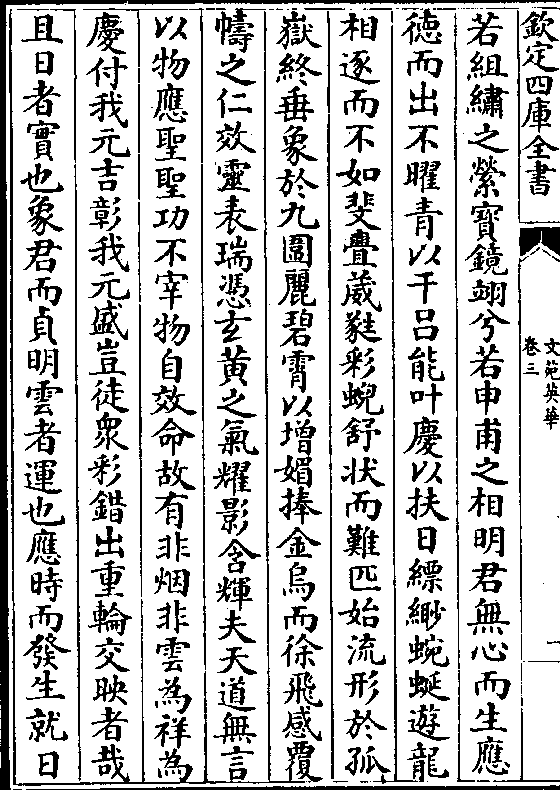 欽定四庫全書
文苑英華
卷三
若組繡之縈寳鏡翊兮若申甫之相明君無心而生應
徳而出不曜青以干吕能叶慶以扶日縹緲蜿蜒遊龍
相逐而不如斐亹葳蕤彩蜺舒状而難匹始流形於孤
嶽終垂象於九圍麗碧霄以增媚捧金烏而徐飛感覆
幬之仁效靈表瑞憑玄黄之氣耀影含輝夫天道無言
以物應聖聖功不宰物自效命故有非烟非雲為祥為
慶付我元吉彰我元盛豈徒衆彩錯出重輪交映者哉
且日者實也象君而貞明雲者運也應時而發生就日